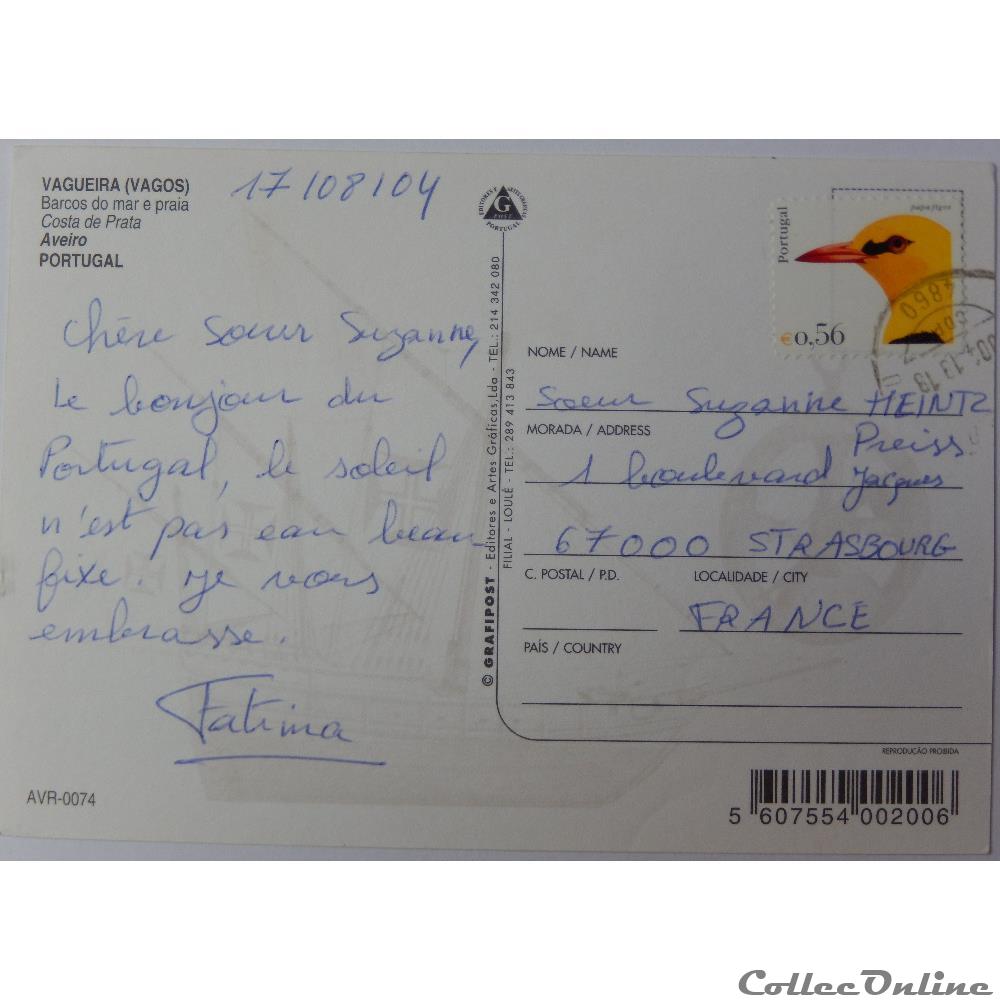 VAGUEIRA (VAGOS)
Barcos do mar e praia
Costa de Prata
Aveiro
PORTUGAL
17/08/04
Chère Soeur Suzanne,
Le bonjour du
Portugal, le soleil
n'est pas eau beau-
fixe. Je vous
embrasse.
Fatima
AVR-0074
EDITORES E ARTES GRÁFICAS
G
POST
PORTUGAL
© GRAFIPOST - Editores e Artes Gráficas,Lda - TEL.: 214 342 080
FILIAL - LOULÉ - TEL.: 289 413 843
Portugal
papa figos
€0,56
7860
NOME / NAME
Soeur Suzanne HEINTZ
MORADA / ADDRESS
Preiss
1 boulevard Jacques
67000 STRASBOURG
C. POSTAL / P.D.
LOCALIDADE / CITY
FRANCE
PAÍS / COUNTRY
REPRODUÇÃO PROIBIDA
5 607554 002006
CollecOnline